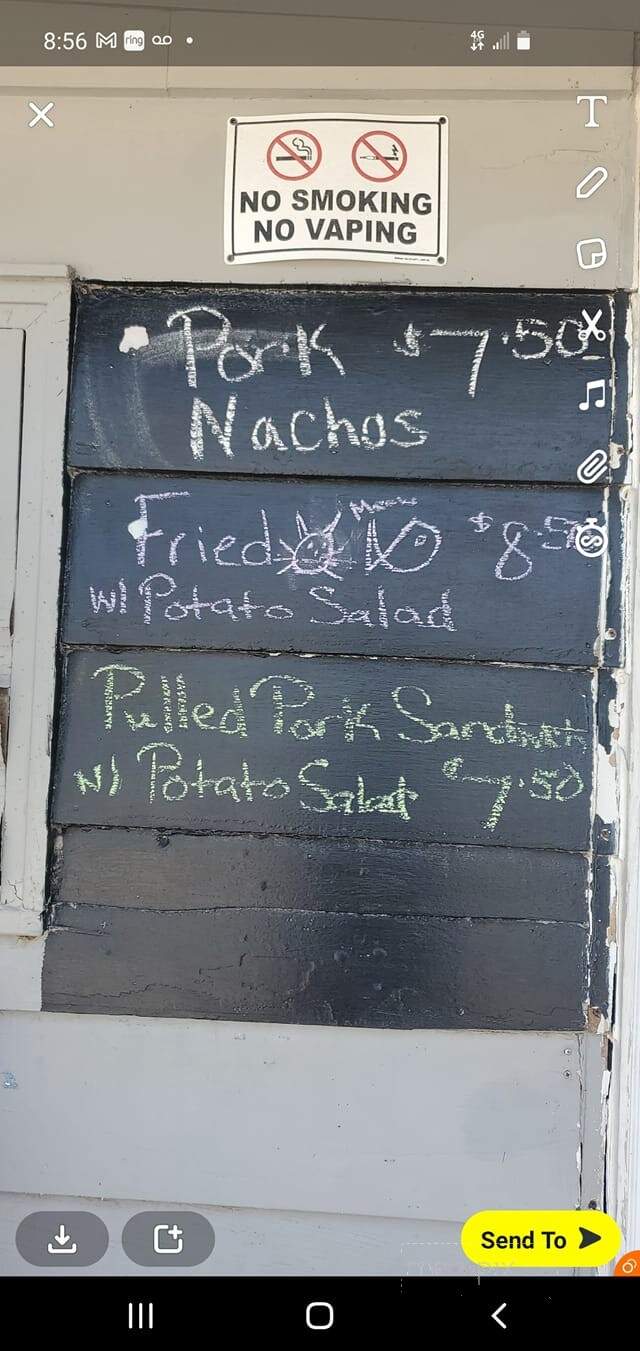 8:56 M ring
4G
T
NO SMOKING
NO VAPING
Pork $7.50
Nachos
Fried Meow $8.5
W/ Potato Salad
Pulled Pork Sandwich
W/ Potato Salad $7.50
S
Send To